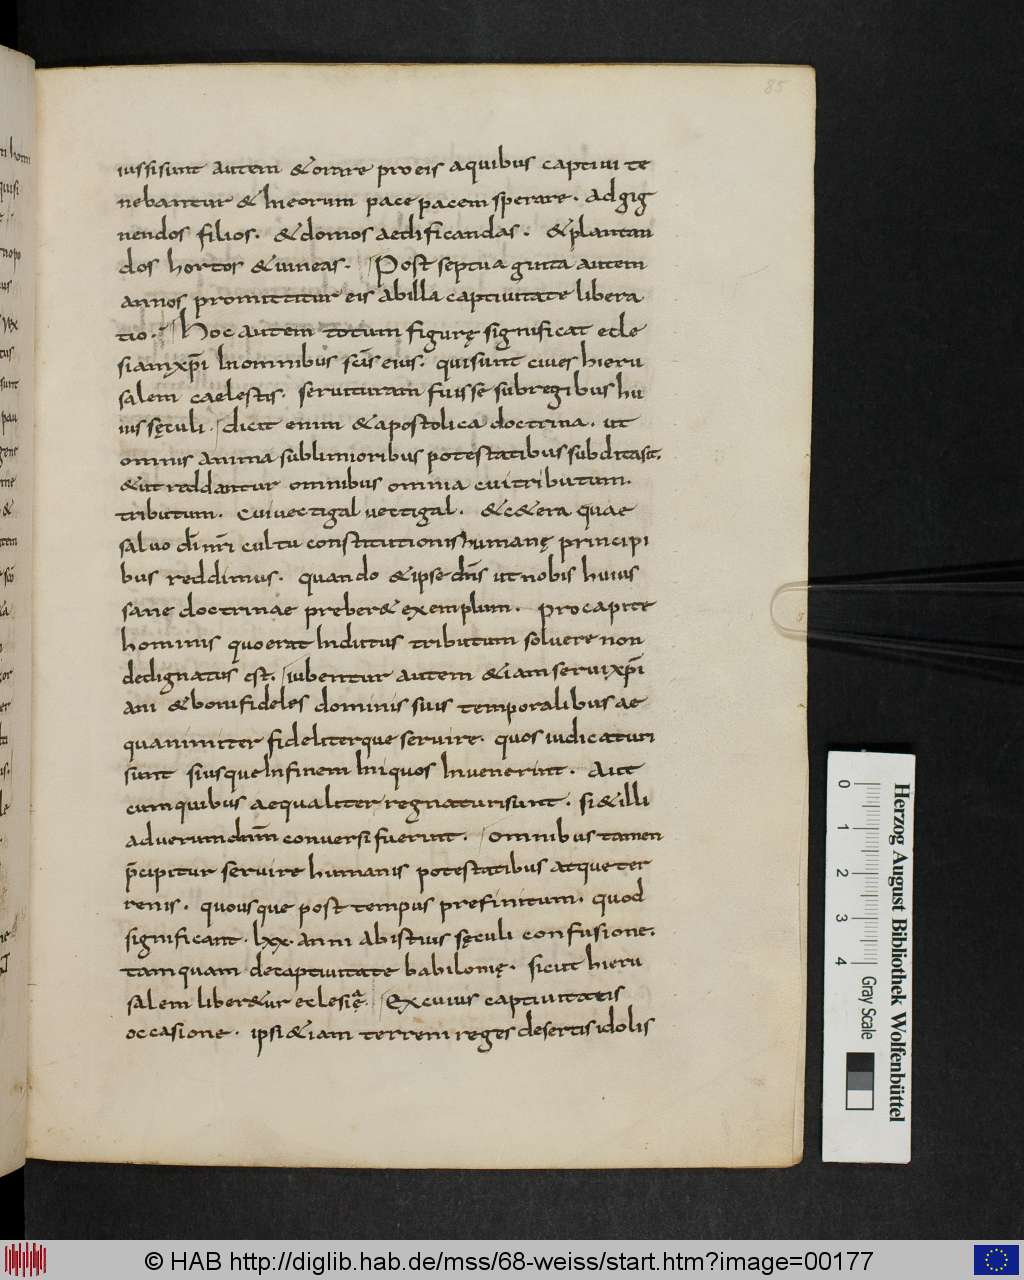 85
iussi sunt autem & orare pro eis a quibus captiui te
nebantur & in eorum pace pacem sperare. ad gig
nendos filios. & domos aedificandas. & plantan
dos hortos & uineas. Post septuaginta autem
annos promittitur eis ab illa captiuitate libera
tio. Hoc autem totum figurę significat ecle
siam xp̄i In omnibus sc̄is eius. qui sunt ciues hieru
salem caelestis. seruituram fuisse sub regibus hu
ius sęculi. dicit enim & apostolica doctrina. ut
omnis anima sublimioribus potestatibus subdita sit.
& ut reddantur omnibus omnia cui tributum.
tributum. cui uectigal uectigal. & c&era quae
saluo dī nr̄i cultu constitutionis humanę principi
bus reddimus. quando & ipse dn̄s ut nobis huius
sane doctrinae preber& exemplum. pro capite
hominis quo erat Indutus tributum soluere non
dedignatus est. iubentur autem &iam serui xp̄i
ani & boni fideles dominis suis temporalibus ae
quanimiter fideliterque seruire. quos iudicaturi
sunt si usque In finem Iniquos Inuenerint. Aut
cum quibus aequaliter regnaturi sunt. si & illi
ad uerum dn̄m conuersi fuerint. omnibus tamen
p̄cipitur seruire humanis potestatibus atque ter
renis. quousque post tempus prefinitum. quod
significant. lxx. anni ab istius sęculi confusione.
tamquam de captiuitate babilonię. sicut hieru
salem liber&ur eclesię. Ex cuius captiuitatis
occasione. ipsi &iam terreni reges desertis idolis
0
1
2
3
4
Gray Scale
Herzog August Bibliothek Wolfenbüttel
© HAB http://diglib.hab.de/mss/68-weiss/start.htm?image=00177